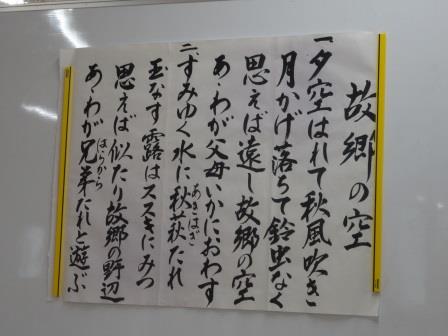 故郷の空
一夕空はれて秋風吹き
月かげ落ちて鈴虫なく
思えば遠し故郷の空
あゝわが父母いかにおわす
二、すみゆく水に秋萩たれ
玉なす露はススキにみつ
思えば似たり故郷の野辺
あゝわが兄弟たれと遊ぶ
あきはぎ
はらから